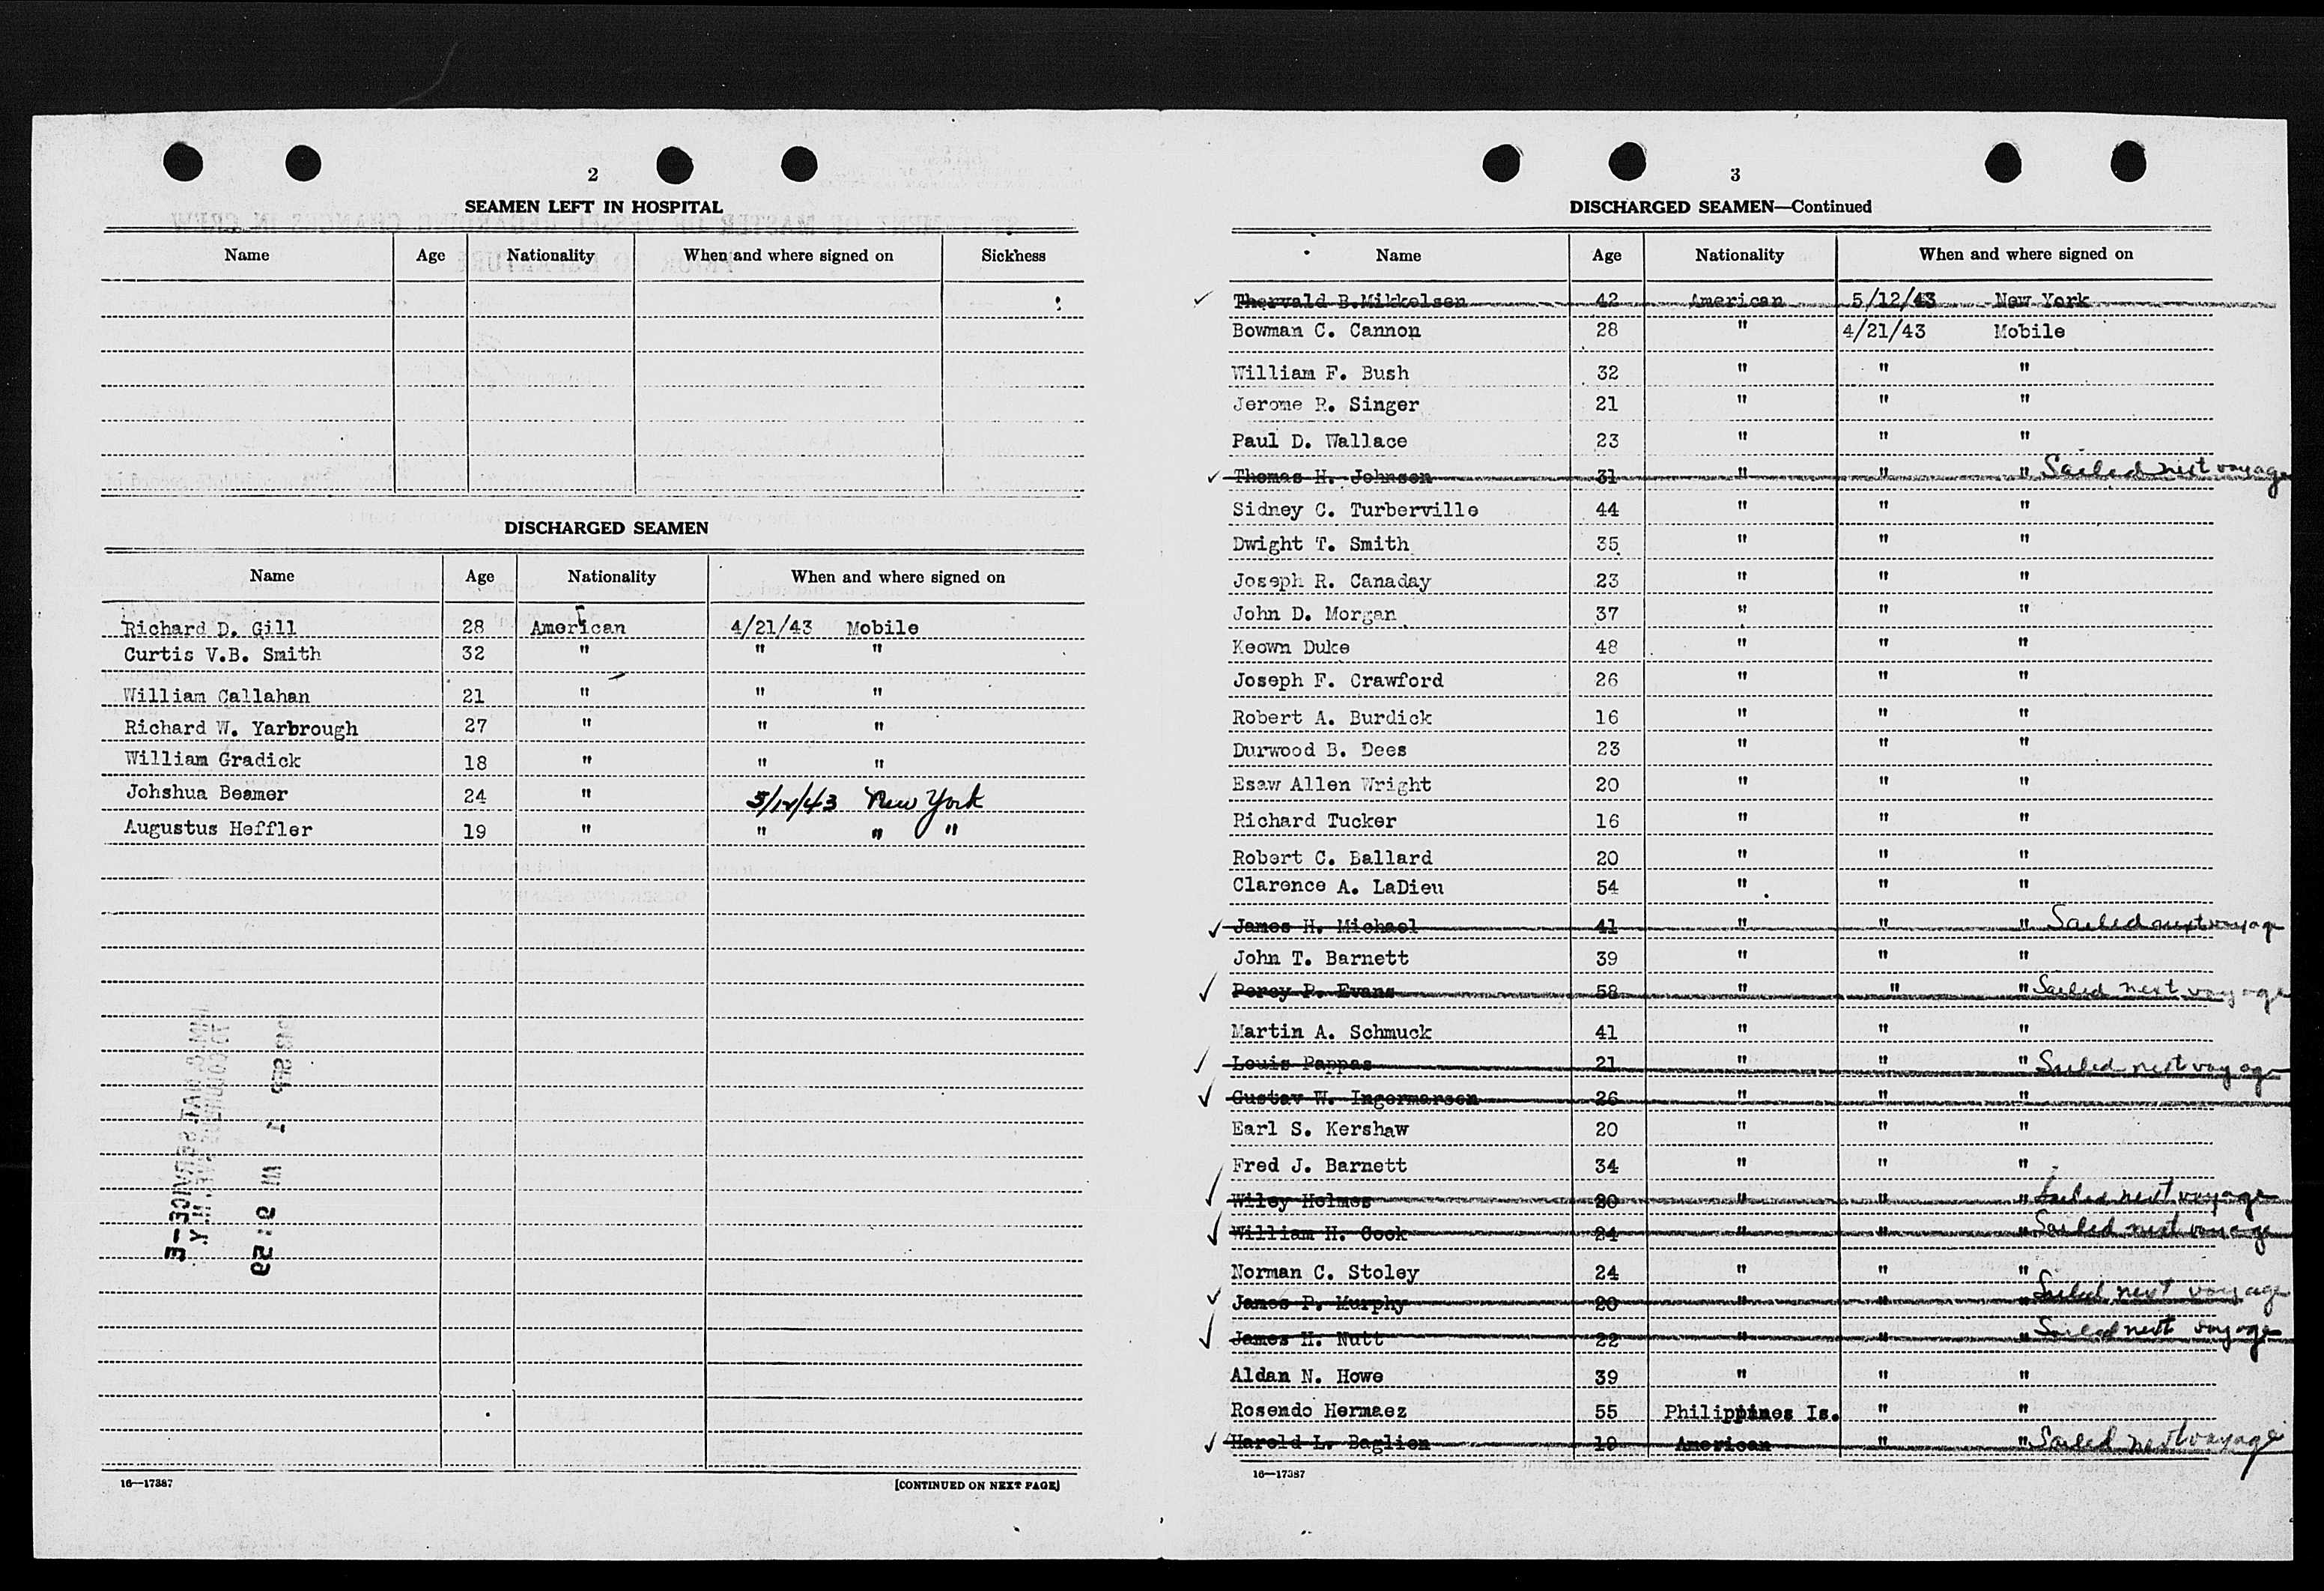 2
SEAMEN LEFT IN HOSPITAL
Name Age Nationality When and where signed on Sickness
DISCHARGED SEAMEN
Name Age Nationality When and where signed on
Richard D. Gill 28 American 4/21/43 Mobile
Curtis V.B. Smith 32 " " "
William Callahan 21 " " "
Richard W. Yarbrough 27 " " "
William Gradick 18 " " "
Johshua Beamer 24 " 5/12/43 New York
Augustus Heffler 19 " " " "
16—17387 [CONTINUED ON NEXT PAGE]
3
DISCHARGED SEAMEN—Continued
Name Age Nationality When and where signed on
Thorvald B.Mikkelsen 42 American 5/12/43 New York
Bowman C. Cannon 28 " 4/21/43 Mobile
William F. Bush 32 " " "
Jerome R. Singer 21 " " "
Paul D. Wallace 23 " " "
Thomas H. Johnson 31 " " " Sailed next voyage
Sidney C. Turberville 44 " " "
Dwight T. Smith 35 " " "
Joseph R. Canaday 23 " " "
John D. Morgan 37 " " "
Keown Duke 48 " " "
Joseph F. Crawford 26 " " "
Robert A. Burdick 16 " " "
Durwood B. Dees 23 " " "
Esaw Allen Wright 20 " " "
Richard Tucker 16 " " "
Robert C. Ballard 20 " " "
Clarence A. LaDieu 54 " " "
James H. Michael 41 " " " Sailed next voyage
John T. Barnett 39 " " "
Percy P. Evans 58 " " " Sailed next voyage
Martin A. Schmuck 41 " " "
Louis Pappas 21 " " " Sailed next voyage
Gustav W. Ingermarson 26 " " "
Earl S. Kershaw 20 " " "
Fred J. Barnett 34 " " "
Wiley Holmes 20 " " " Sailed next voyage
William H. Cook 24 " " " Sailed next voyage
Norman C. Stoley 24 " " "
James P. Murphy 20 " " " Sailed next voyage
James H. Nutt 22 " " " Sailed next voyage
Aldan N. Howe 39 " " "
Rosendo Hermaez 55 Philippines Is. " "
Harold L. Baglien 19 American " " Sailed next voyage
16—17387